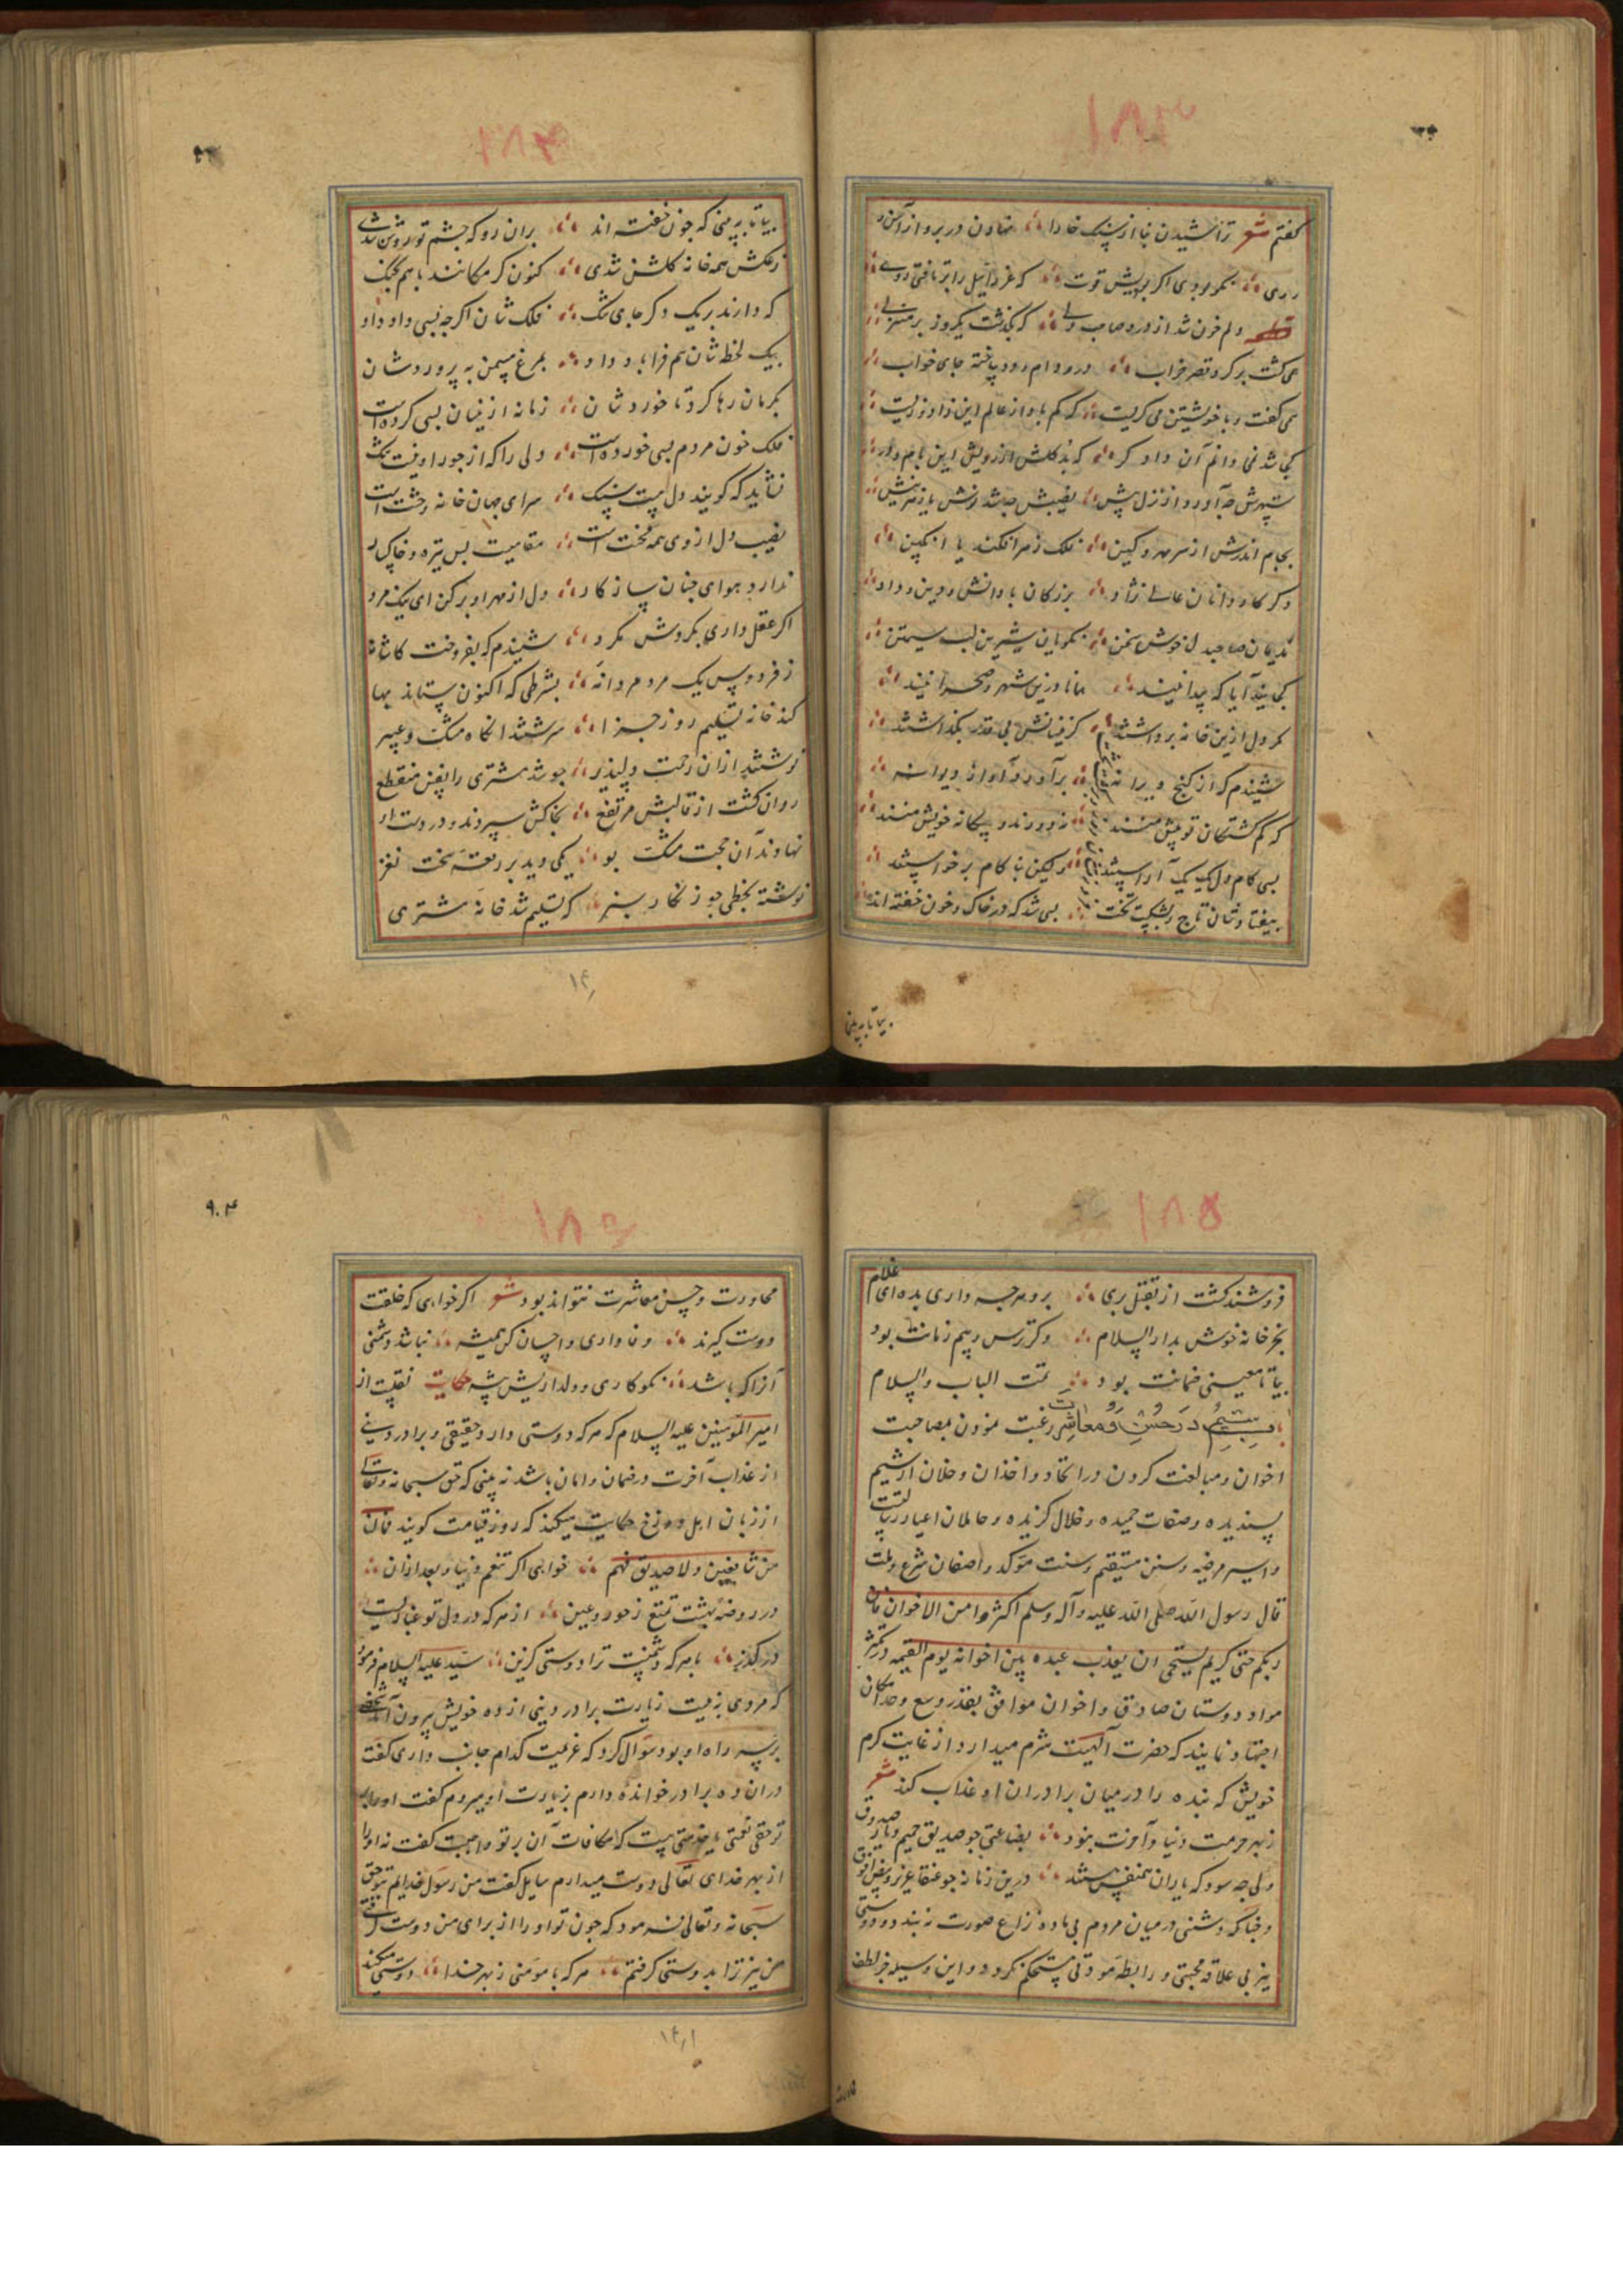 ۱۸۳
گفتم شعر تراشیدن پا از سنگ خارا نهادن در بر و از آهن
دری نکو بودی اگر بودیش قوت که عزرائیل را بر تافتی روی
قطعه دلم خون شد از درد صاحب دلی که بگذشت یکروز بر منزلی
همی گشت بر گرد قصر خراب درو دام و دد ساخته جای خواب
همی گفت و با خویشتن می گریست که کم باد از عالم این زاد و زیست
کجا شد نمی دانم آن دادگر که بد گلشن از رویش این بام و در
سپهرش چه آورد از نزل پیش نصیبش چه شد نوش یا زهر نیش
بجام اندرش از سر مهر و کین فلک زهر افکند یا انگبین
دگر کاردانان عالی نژاد بزرگان با دانش و دین و داد
ندیمان صاحبدل خوش سخن نکویان شیرین لب سیمتن
کجایند آیا که پیدا نیند همانا درین شهر و صحرا نیند
مگر دل ازین خانه برداشتند کزینسانش بی قدر بگذاشتند
شنیدم که از کنج ویرانه برآورد آواز دیوانه
که گم گشتگان تو پیش منند نه دورند و بیگانه خویش منند
بسی کام دل یک بیک آراستند ولیکن بنا کام برخواستند
بیفتادشان تاج و بشکست تخت بسی شد که در خاک و خون خفته اند
بیا تا ببینی
۱۸۴
بیا تا ببینی که چون خفته اند بران رو که چشم تو روشن شدی
ز عکسش همه خانه گلشن شدی کنون کرمکانند با هم بجنگ
که دارند بر یک دگر جای تنگ فلک شان اگر چه بسی داد داد
بیک لحظه شان هم فرا باد داد بمرغ سمن به پروردشان
بکرمان رها کرد تا خوردشان زمانه ازینسان بسی کرده است
فلک خون مردم بسی خورده است دلی را که از جور او نیست تنگ
نشاید که گویند دل هست سنگ سرای جهان خانه وحشت است
نصیب دل از وی همه محنت است مقامیست بس تیره و خاکسار
ندارد هوای جنان سازگار دل از مهر او بر کن ای نیک مرد
اگر عقل داری بگردش مگرد شنیدم که بفروخت کاشانه
ز فردوس یک مرد مردانه بشرطی که اکنون ستاند بها
کند خانه تسلیم روز جزا سرشتند انگاه مشک و عبیر
نوشتند ازان رحمت دلپذیر چو شد مشتری را نفس منقطع
روان گشت از قالبش مرتفع بخاکش سپردند و در دست او
نهادند آن حجت مشک بو یکی دید بر رقعه سخت نغز
نوشته بخطی چو زنگار سبز که تسلیم شد خانه مشتری
۱۸۵
فروشنده گشت از تقبل بری برو هر چه داری بده ای غلام
بخر خانه خوش بدار السلام وگر ترس و بیم زمانت بود
بیا تا معینی ضمانت بود تمت الباب والسلام
باب بیستم در حسن و معاشرت رغبت نمودن بمصاحبت
اخوان و مبالغت کردن در اتخاد و اخذان و خلان از شیم
پسندیده و صفات حمیده و خلال گزیده و حاملان اعیاد رسالتست
و اسیر مرضیه و سنن مستقیم و سنت موکد واصفان شرع و ملت
قال رسول الله صلی الله علیه وآله وسلم اکثروا من الاخوان فان
ربکم حیی کریم یستحیی ان یعذب عبده بین اخوانه یوم القیمه در تکثیر
مواد دوستان صادق و اخوان موافق بقدر وسع و حد امکان
اجتهاد نمایند که حضرت الهیت شرم میدارد از غایت کرم
خویش که بنده را در میان برادران او عذاب کند شعر
ز بهر حرمت دنیا و آخرت بنود بضاعتی چو صدیق حمیم و یار صدوق
ولی چه سود که یاران همنفس هستند درین زمانه چو عنقا عزیز
و چنانکه دشمنی در میان مردم بی ماده نزاع صورت نه بندد و دوستی
نیز بی علاقه محبتی و رابطه مودتی مستحکم نگردد و این وسیله جز لطف
محاورت
۱۸۶
۹۰۴
محاورت و حسن معاشرت نتواند بود شعر اگر خواهی که خلقت
دوست گیرند وفاداری و احسان کن همیشه نباشد دشمنی
آنرا که باشد نکوکاری و دلداریش پیشه حکایت نقلست از
امیر المومنین علیه السلام که هر که دوستی دارد حقیقی و برادر دینی
از عذاب آخرت در ضمان و امان باشد نه بینی که حق سبحانه وتعالی
از زبان اهل دوزخ حکایت میکند که روز قیامت گویند فما لنا
من شافعین ولا صدیق فهم خواهی اگر تنعم دنیا و بعد ازان
در روضه بهشت تمتع ز حور و عین از هر که در دل تو غباریست
در گذر با هر که دشمنست ترا دوستی گزین سید علیه السلام فرمود
که مردی به نیت زیارت برادر دینی از ده خویش بیرون آمد شخصی
بر سر راه او بود سوال کرد که عزیمت کدام جانب داری گفت
دران ده برادر خوانده دارم بزیارت او میروم گفت او را بر
تو حقی نعمتی یا خدمتی هست که مکافات آن بر تو واجبست گفت نه او را
از بهر خدای تعالی دوست میدارم سایل گفت من رسول خدایم بتو حق
سبحانه وتعالی فرمود که چون تو او را از برای من دوست گرفتی
من نیز ترا بدوستی گرفتم هر که با مومنی ز بهر خدا دوستی میکند